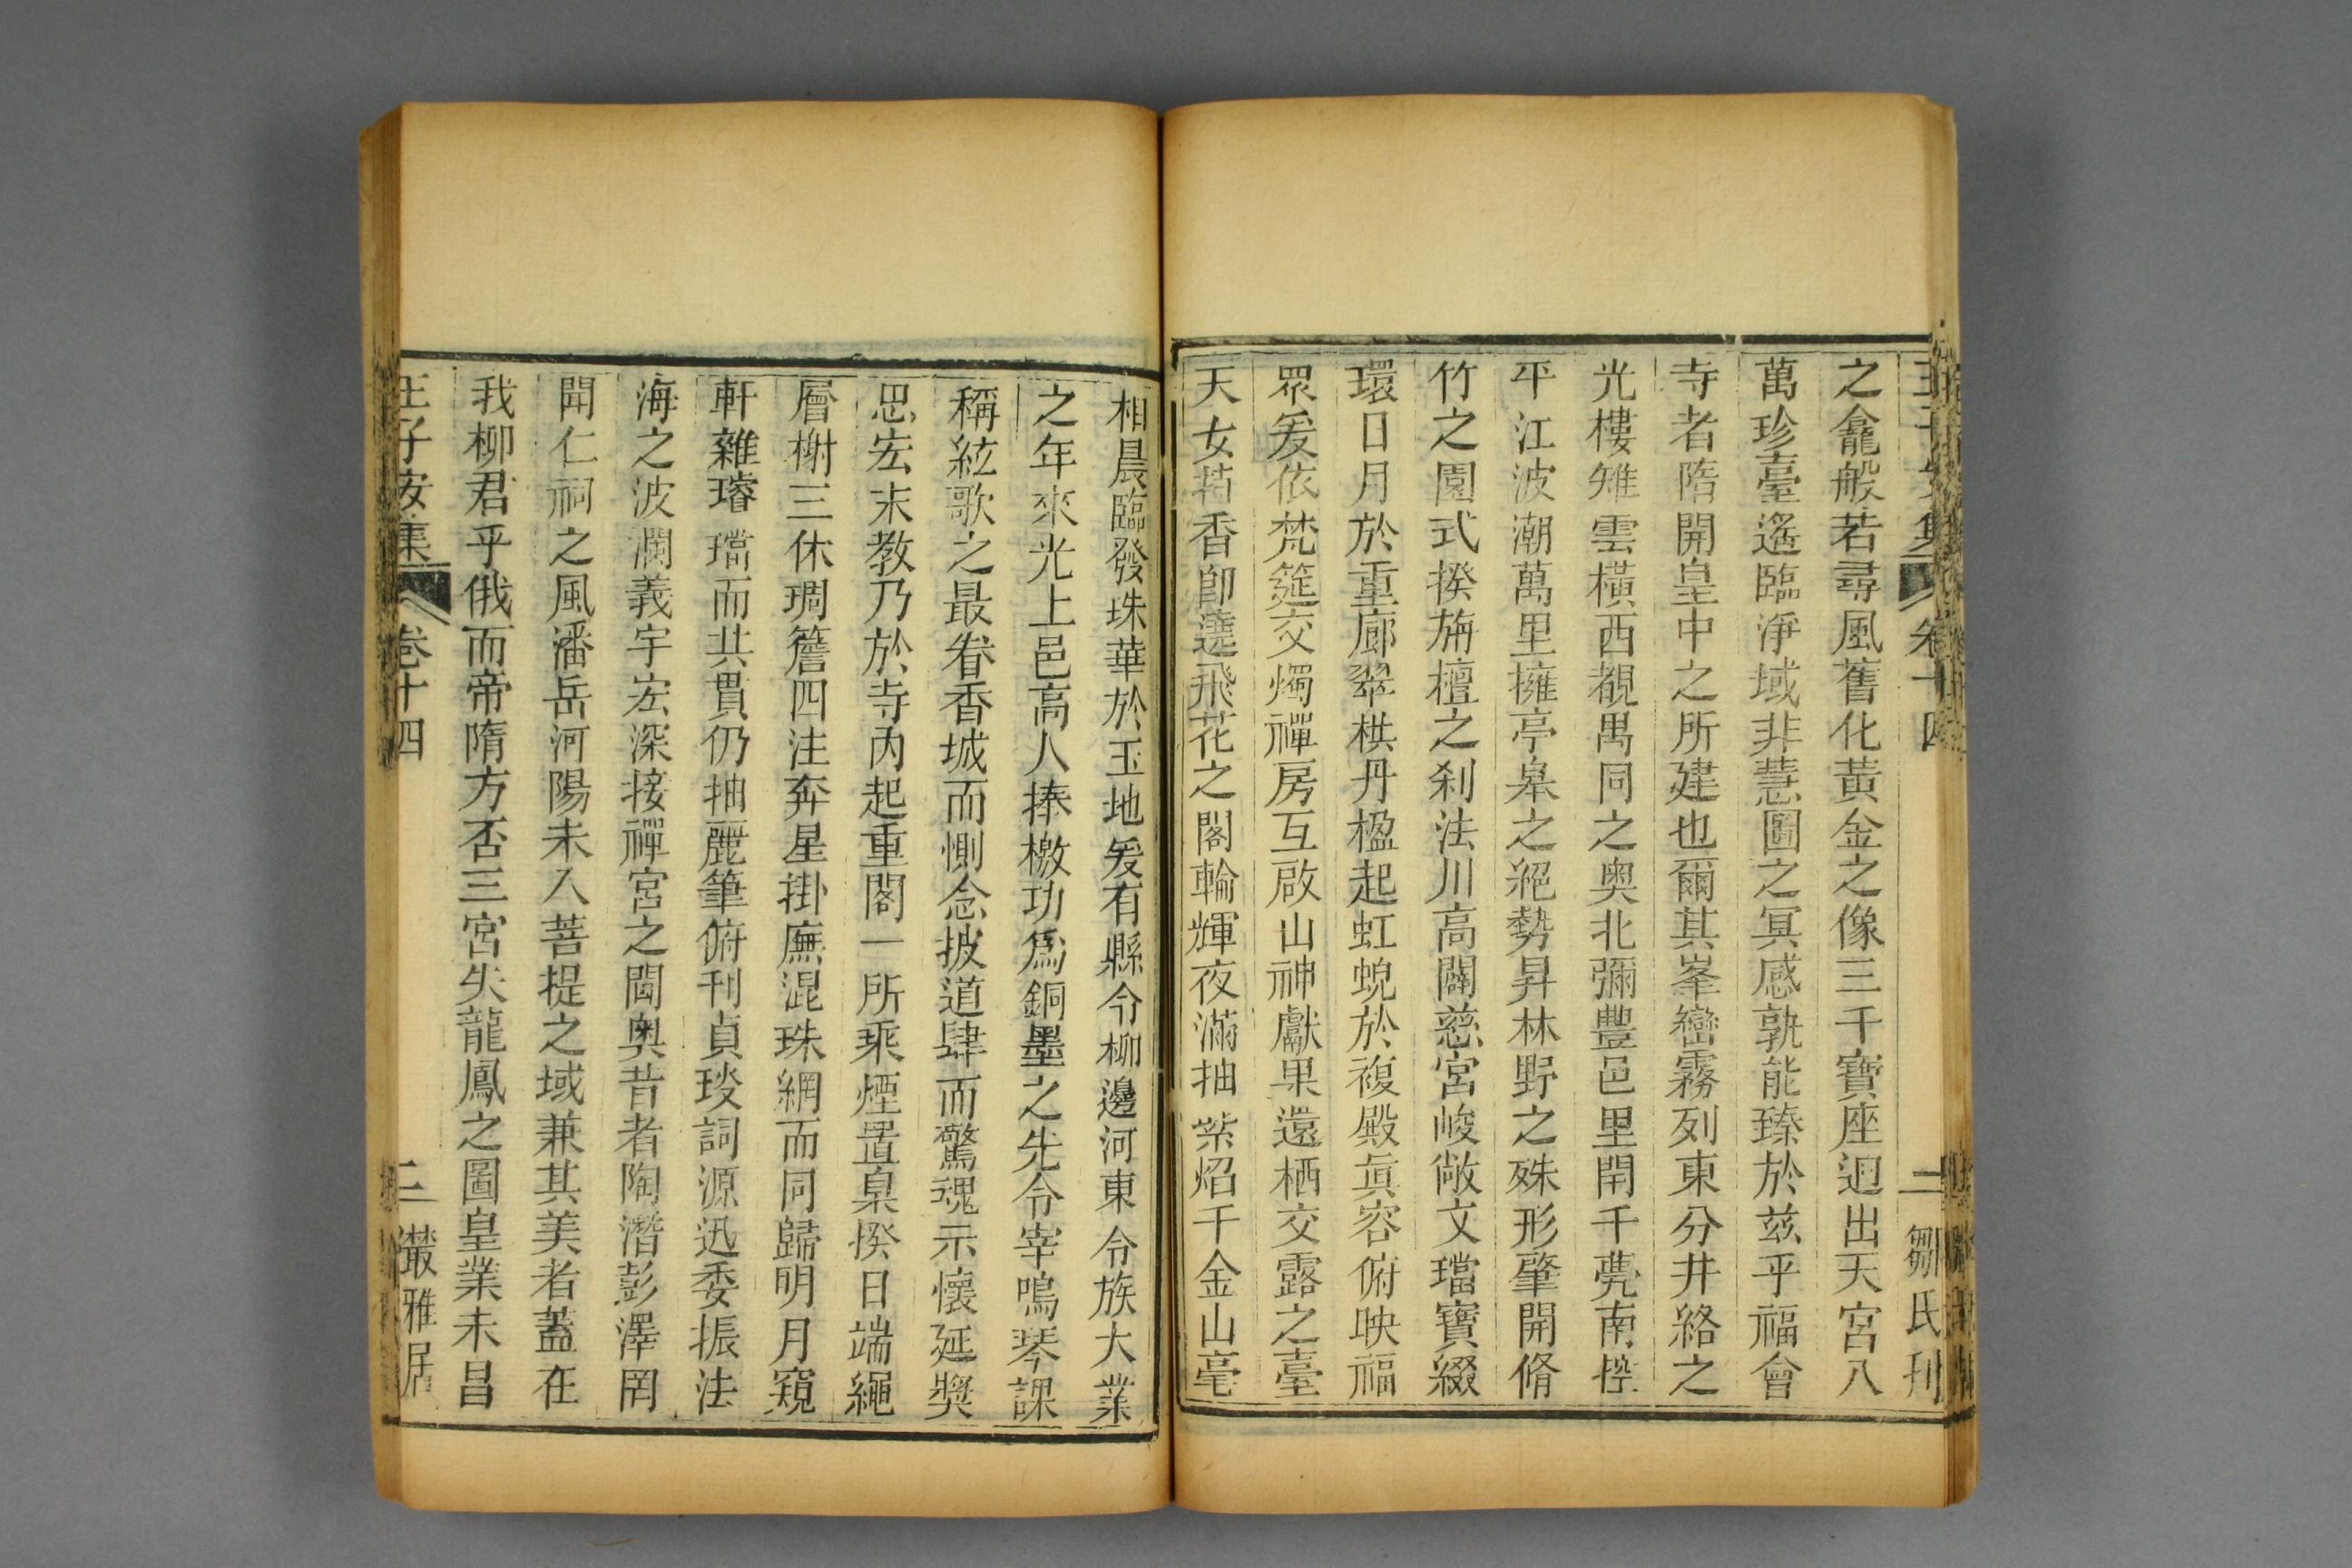 王子安集 卷十四 二 鄒氏刊
之龕般若尋風舊化黃金之像三千寶座迴出天宮八
萬珍臺遙臨淨域非慧圖之冥感孰能臻於茲乎福會
寺者隋開皇中之所建也爾其峯巒霧列東分井絡之
光樓雉雲橫西覩禺同之奥北彌豐邑里閈千甍南控
平江波潮萬里擁亭皋之絕勢昇林野之殊形肇開脩
竹之園式揆旃檀之刹法川高闢慈宮峻敞文璫寶綴
環日月於重廊翠栱丹楹起虹蜺於複殿眞容俯映福
眾爰依梵筵交燭禪房互啟山神獻果還栖交露之臺
天女若香卽遶飛花之閣輪輝夜滿抽紫焰千金山毫
相晨臨發珠華於玉地爰有縣令柳邊河東令族大業
之年來光上邑高人捧檄功爲銅墨之先令宰鳴琴課
稱絃歌之最眷香城而惻念披道肆而驚魂示懷延獎
思宏末教乃於寺內起重閣一所乘煙置臬揆日端繩
層榭三休琱簷四注奔星掛廡混珠網而同歸明月窺
軒雜璿璫而共貫仍抽麗筆俯刊貞琰詞源迅委振法
海之波瀾義宇宏深接禪宮之閫奥昔者陶潛彭澤罔
聞仁祠之風潘岳河陽未入菩提之域兼其美者蓋在
我柳君乎俄而帝隋方否三宮失龍鳳之圖皇業未昌
王子安集 卷十四 三 叢雅居